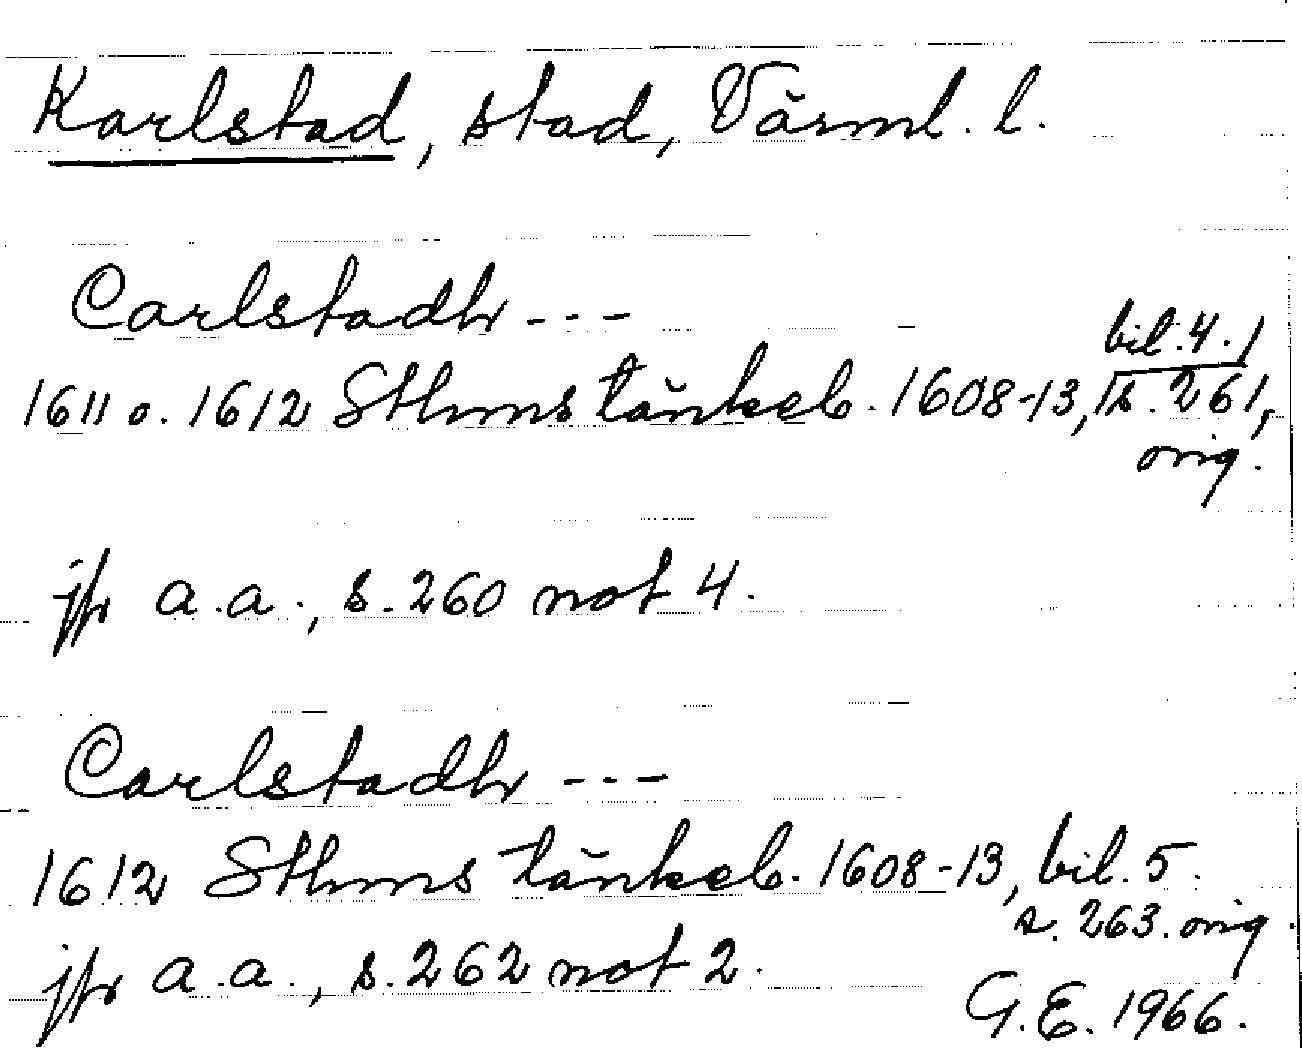 Karlstad, stad, Värml. l.
Carlstadh ---
bil. 4.
1611 o. 1612 Sthms tänkeb. 1608-13, s. 261,
orig.
jfr a.a., s. 260 not 4.
Carlstadh ---
1612 Sthms tänkeb. 1608-13, bil. 5.
s. 263. orig.
jfr a.a., s. 262 not 2.
G.E. 1966.